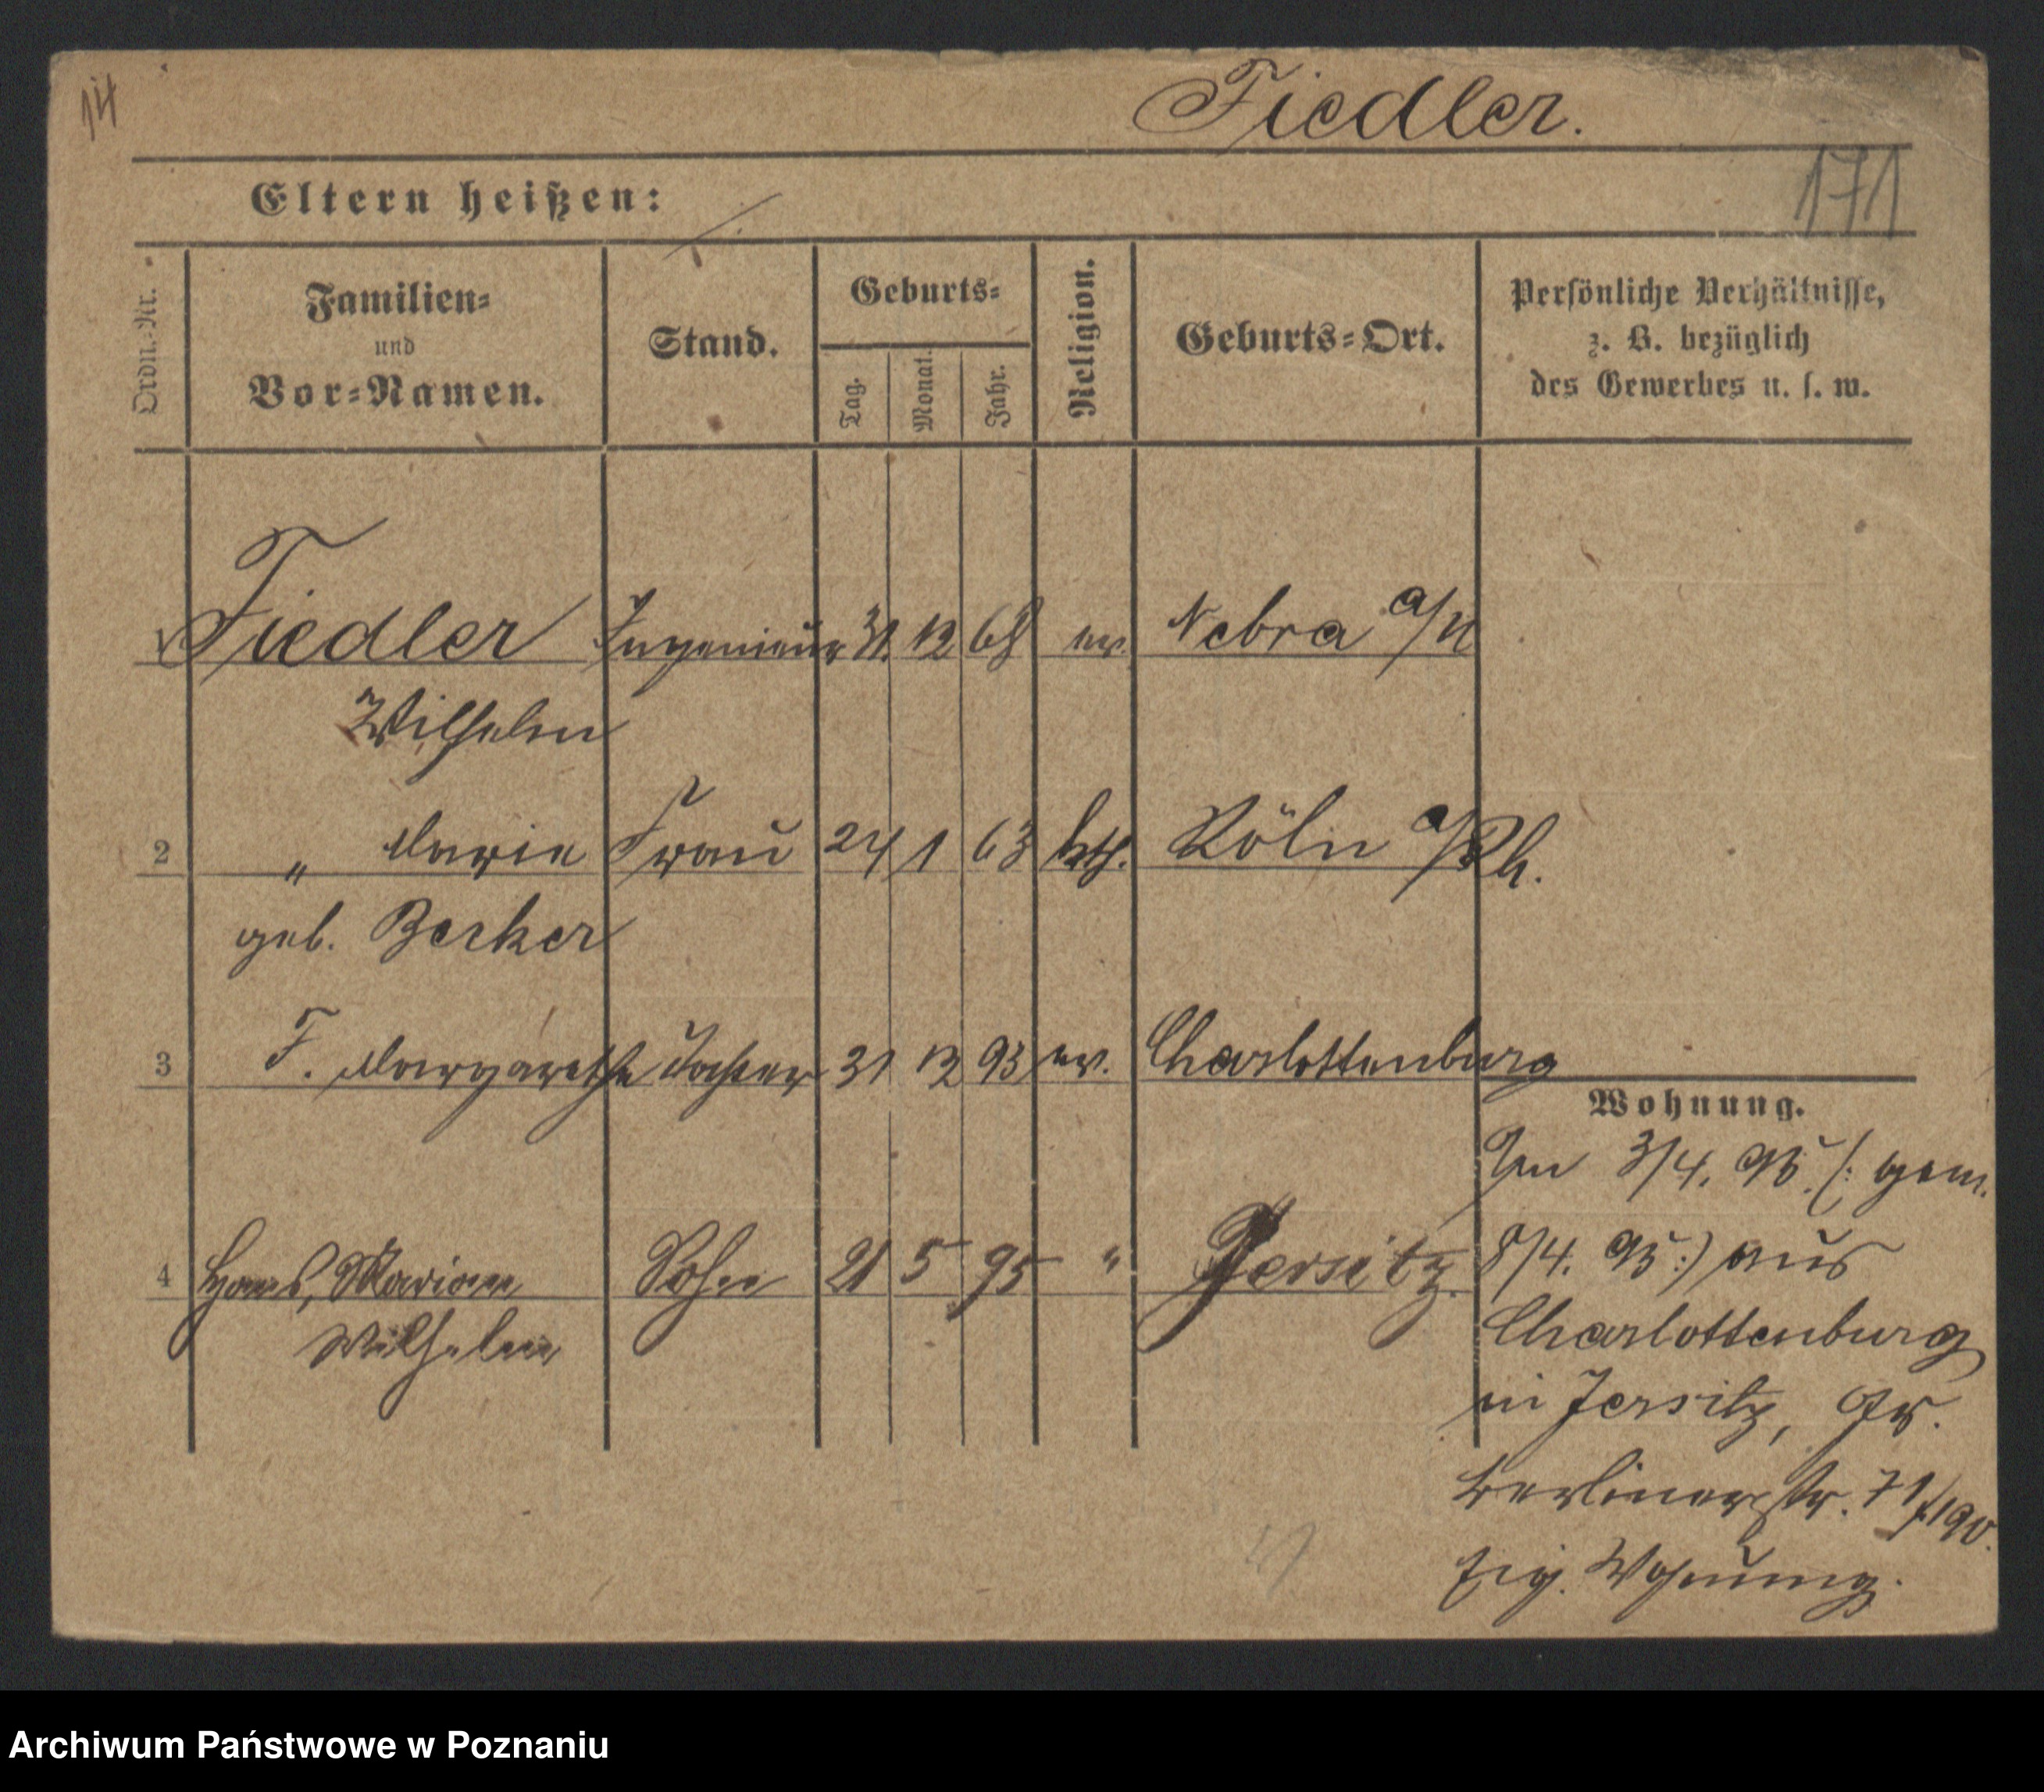 14
Fiedler.
171
Eltern heißen:
Ordn.-Nr.
Familien-
und
Vor-Namen.
Stand.
Geburts-
Tag.
Monat.
Jahr.
Religion.
Geburts-Ort.
Persönliche Verhältnisse,
z. B. bezüglich
des Gewerbes u. s. w.
1 Fiedler Ingenieur 31. 12 68 ev. Nebra a/U
Wilhelm
2 " Marie Frau 24 1 63 kth. Köln a/Rh.
geb. Becker
3 F. Margarethe Tochter 31 12 93 ev. Charlottenburg
4 Hans, Marian Sohn 21 5 95 " Jersitz.
Wilhelm
Wohnung.
Am 3/4. 95. (: gem.
8/4. 95 :) aus
Charlottenburg
in Jersitz, Gr.
Berlinerstr. 71
Eig. Wohnung.
Archiwum Państwowe w Poznaniu